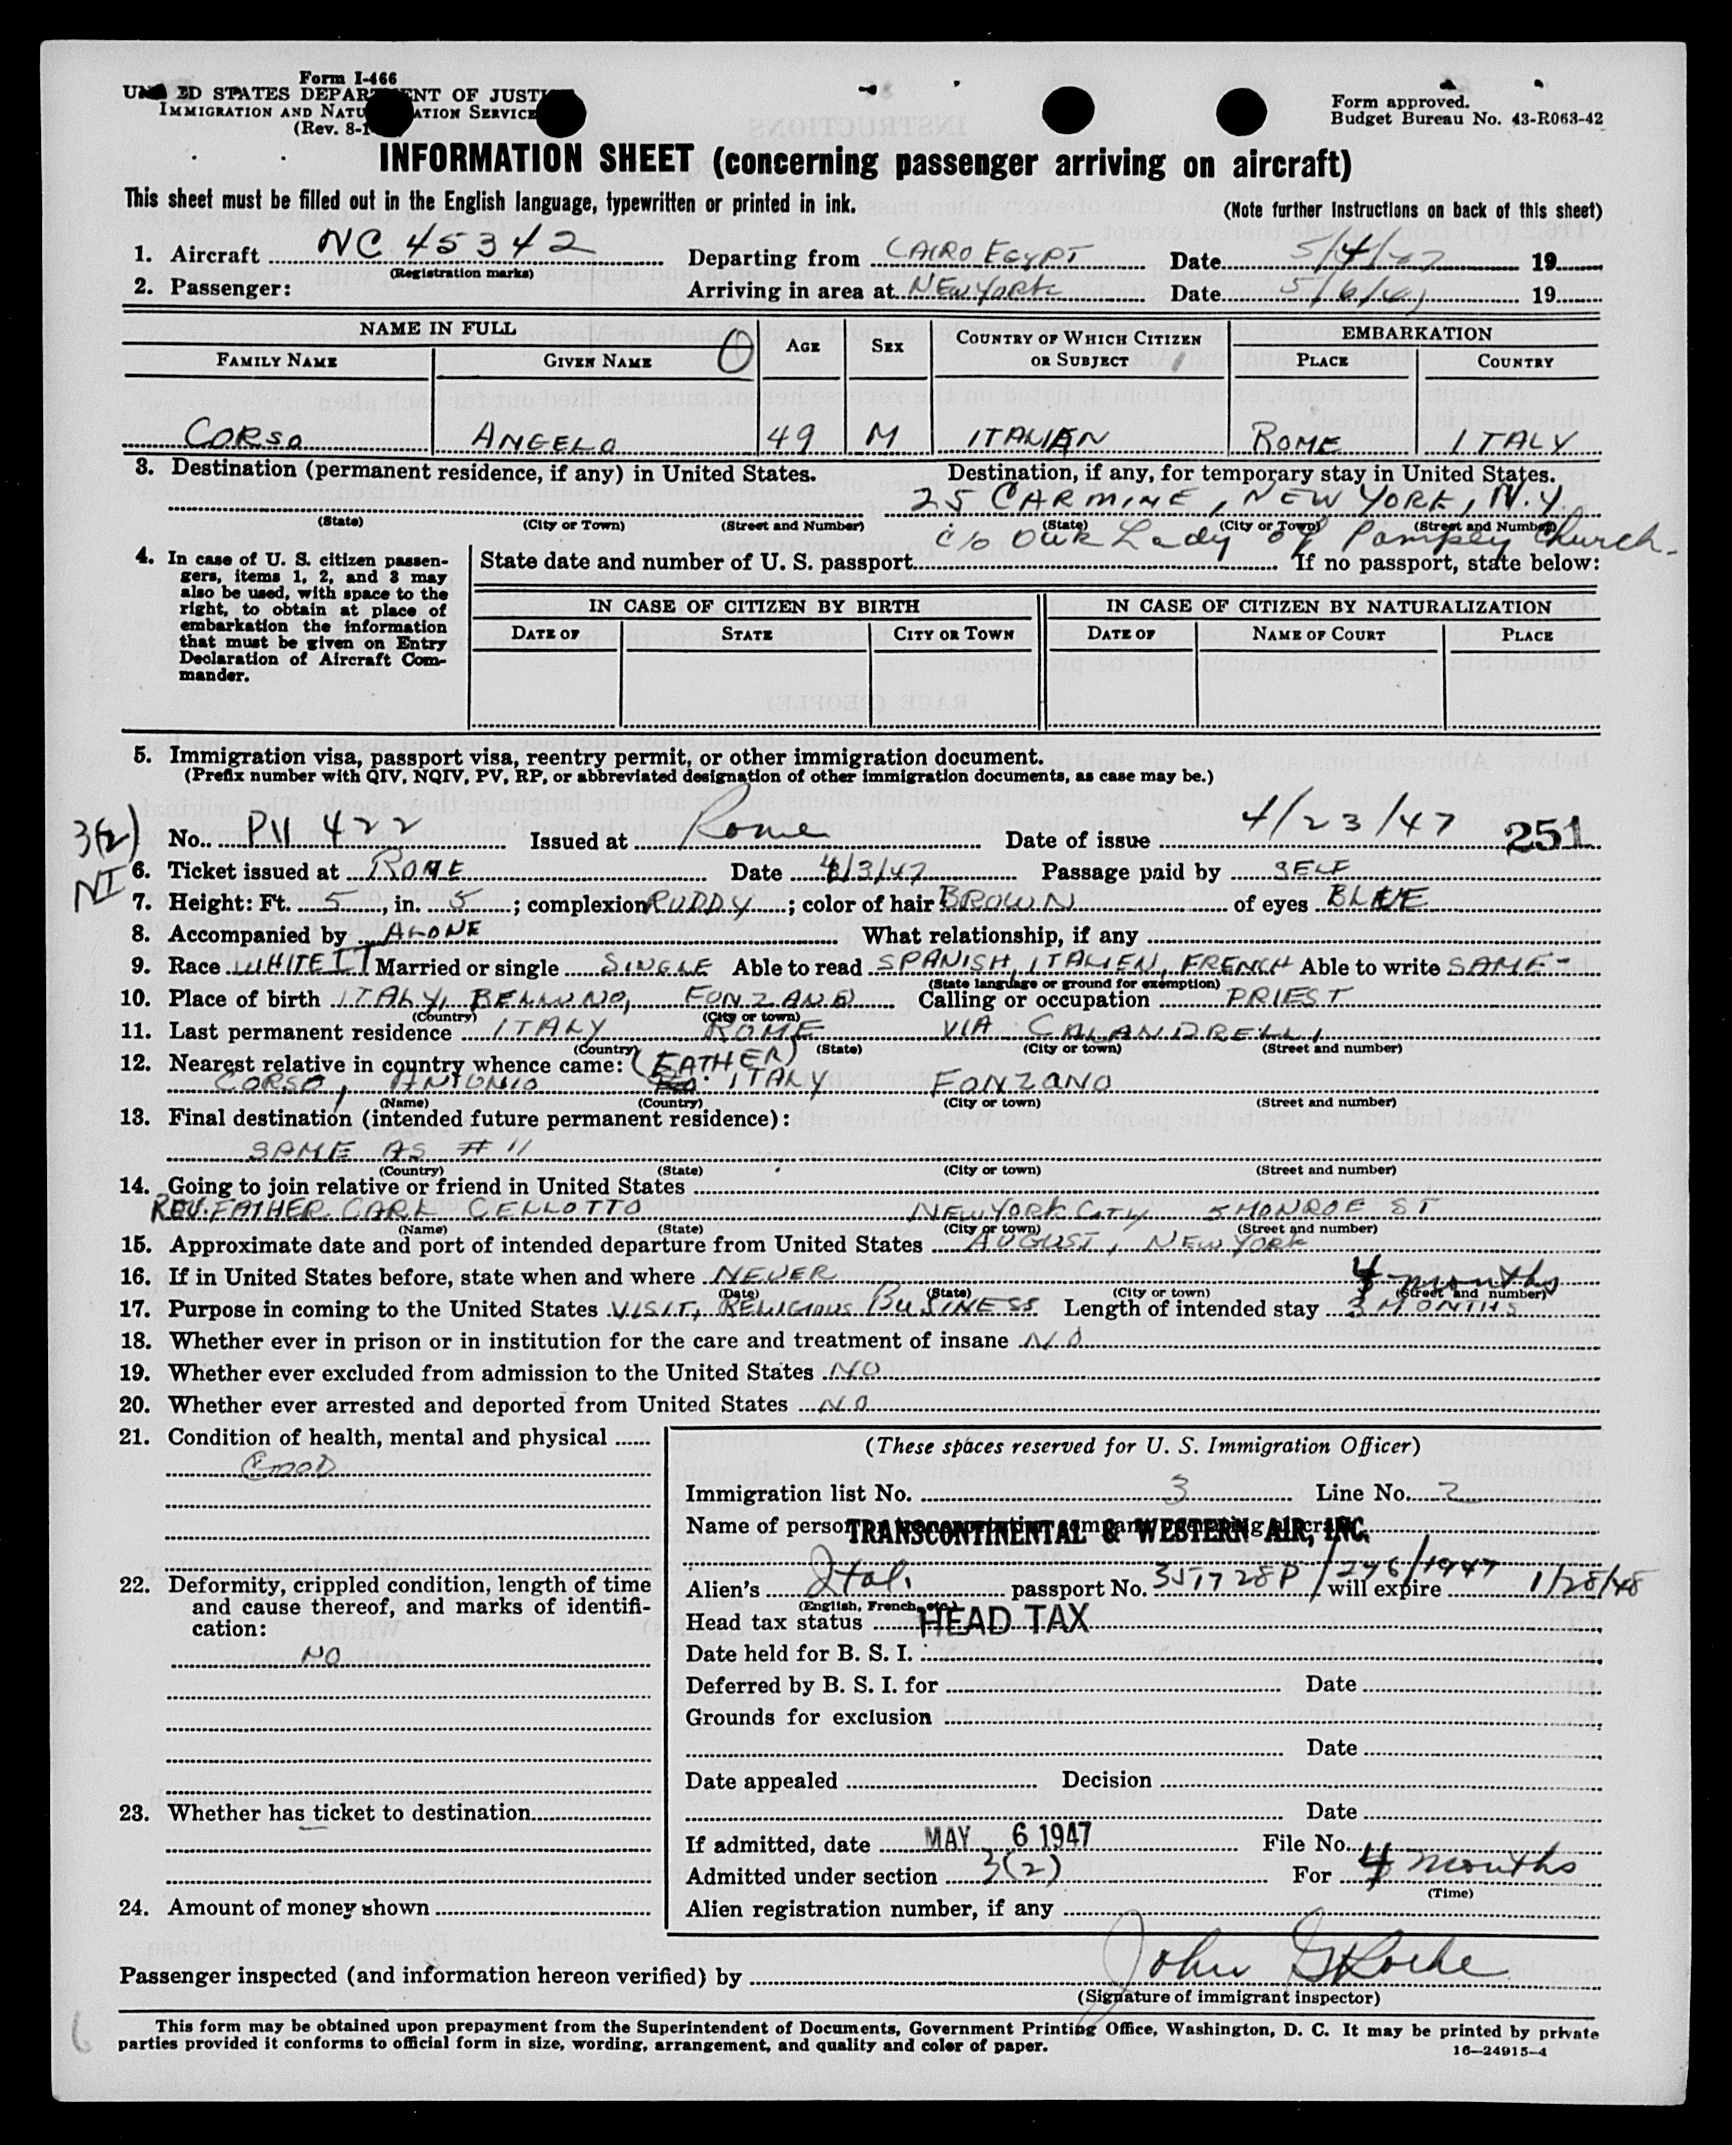 Form I-466
UNITED STATES DEPARTMENT OF JUSTICE
IMMIGRATION AND NATURALIZATION SERVICE
(Rev. 8-1
Form approved.
Budget Bureau No. 43-R063-42
INFORMATION SHEET (concerning passenger arriving on aircraft)
This sheet must be filled out in the English language, typewritten or printed in ink.
(Note further instructions on back of this sheet)
1. Aircraft NC 45342 Departing from CAIRO EGYPT Date 5/4/47 19
(Registration marks)
2. Passenger: Arriving in area at NEW YORK Date 5/6/47 19
NAME IN FULL AGE SEX COUNTRY OF WHICH CITIZEN OR SUBJECT EMBARKATION
FAMILY NAME GIVEN NAME PLACE COUNTRY
CORSO ANGELO 49 M ITALIAN ROME ITALY
3. Destination (permanent residence, if any) in United States. Destination, if any, for temporary stay in United States.
25 CARMINE, NEW YORK, N.Y.
(State) (City or Town) (Street and Number) (State) (City or Town) (Street and Number)
c/o Our Lady of Pompey Church.
4. In case of U. S. citizen passengers, items 1, 2, and 3 may also be used, with space to the right, to obtain at place of embarkation the information that must be given on Entry Declaration of Aircraft Commander.
State date and number of U. S. passport If no passport, state below:
IN CASE OF CITIZEN BY BIRTH IN CASE OF CITIZEN BY NATURALIZATION
DATE OF STATE CITY OR TOWN DATE OF NAME OF COURT PLACE
5. Immigration visa, passport visa, reentry permit, or other immigration document.
(Prefix number with QIV, NQIV, PV, RP, or abbreviated designation of other immigration documents, as case may be.)
3(2) No. PV 422 Issued at Rome Date of issue 4/23/47 251
NI 6. Ticket issued at ROME Date 4/3/47 Passage paid by SELF
7. Height: Ft. 5, in. 5; complexion RUDDY; color of hair BROWN of eyes BLUE
8. Accompanied by ALONE What relationship, if any
9. Race WHITE IT Married or single SINGLE Able to read SPANISH, ITALIEN, FRENCH Able to write SAME-
(State language or ground for exemption)
10. Place of birth ITALY, BELLUNO, FONZANO Calling or occupation PRIEST
(Country) (City or town)
11. Last permanent residence ITALY ROME VIA CALANDRELLI
(Country) (State) (City or town) (Street and number)
12. Nearest relative in country whence came: (FATHER)
CORSO, ANTONIO ITALY FONZANO
(Name) (Country) (City or town) (Street and number)
13. Final destination (intended future permanent residence):
SAME AS # 11
(Country) (State) (City or town) (Street and number)
14. Going to join relative or friend in United States
REV. FATHER CARL CELLOTTO NEW YORK CITY 5 MONROE ST
(Name) (State) (City or town) (Street and number)
15. Approximate date and port of intended departure from United States AUGUST, NEW YORK
16. If in United States before, state when and where NEVER
(Date) (State) (City or town) (Street and number)
4 months
17. Purpose in coming to the United States VISIT, RELIGIOUS BUSINESS Length of intended stay 3 MONTHS
18. Whether ever in prison or in institution for the care and treatment of insane NO
19. Whether ever excluded from admission to the United States NO
20. Whether ever arrested and deported from United States NO
21. Condition of health, mental and physical
GOOD
22. Deformity, crippled condition, length of time and cause thereof, and marks of identification:
NO
23. Whether has ticket to destination
24. Amount of money shown
(These spaces reserved for U. S. Immigration Officer)
Immigration list No. 3 Line No. 2
Name of person
TRANSCONTINENTAL & WESTERN AIR, INC.
Alien's Ital. passport No. 357728P/276/1947 will expire 1/28/48
(English, French, etc.)
Head tax status HEAD TAX
Date held for B. S. I.
Deferred by B. S. I. for Date
Grounds for exclusion
Date
Date appealed Decision
Date
If admitted, date MAY 6 1947 File No.
Admitted under section 3(2) For 4 months
(Time)
Alien registration number, if any
Passenger inspected (and information hereon verified) by John
(Signature of immigrant inspector)
This form may be obtained upon prepayment from the Superintendent of Documents, Government Printing Office, Washington, D. C. It may be printed by private
parties provided it conforms to official form in size, wording, arrangement, and quality and color of paper.
16—24915-4